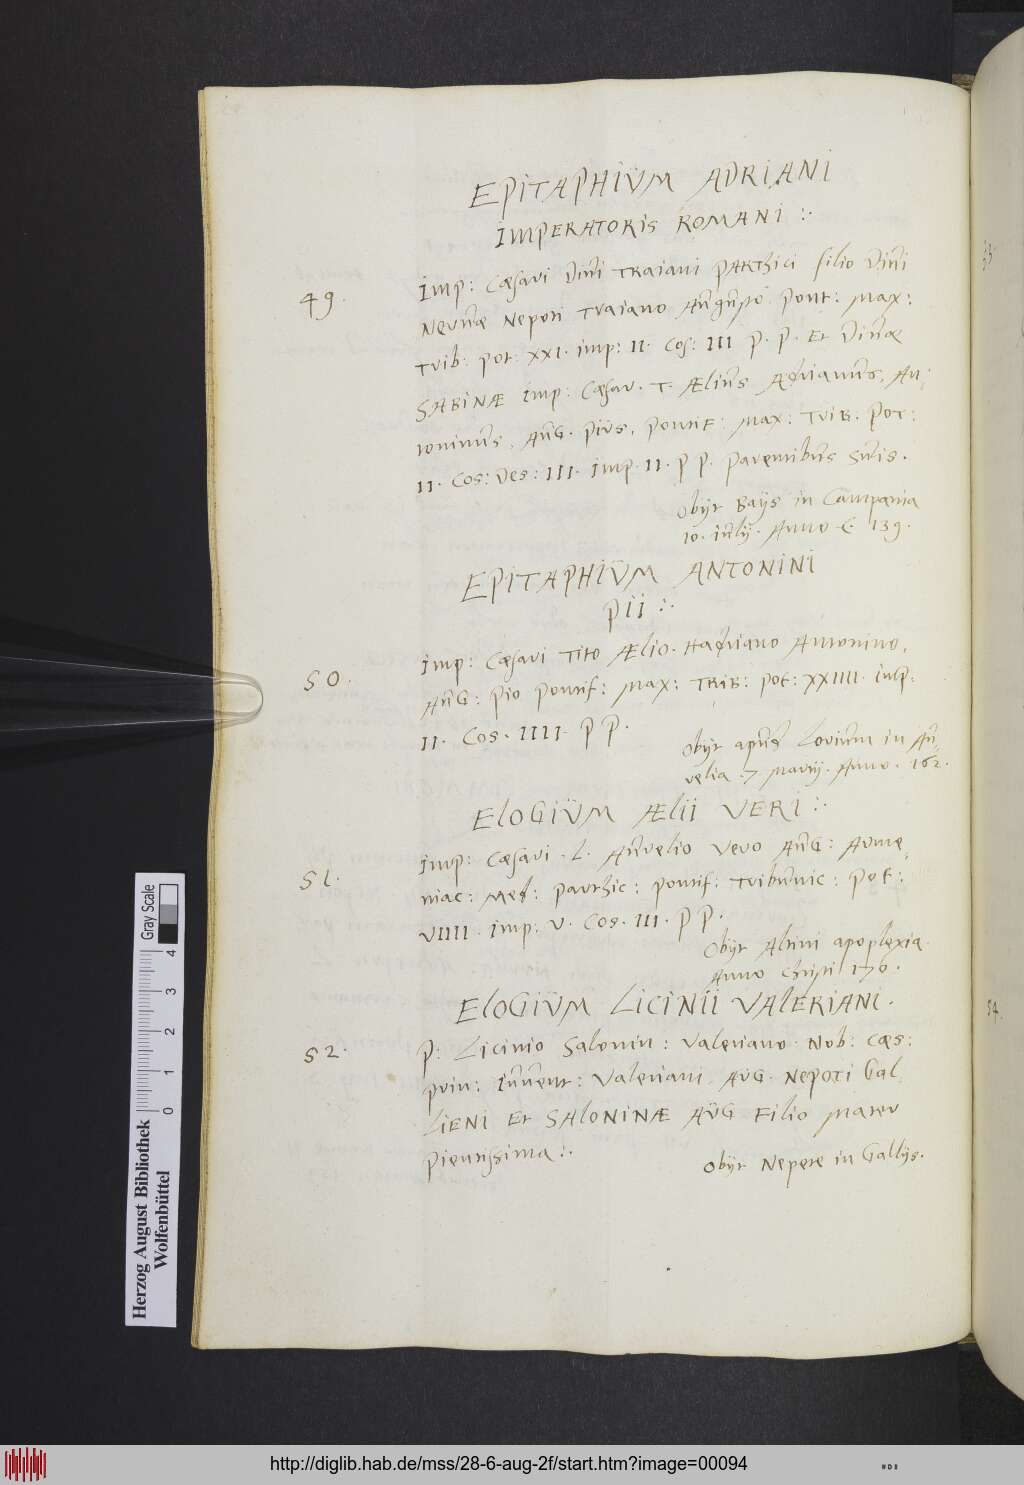 EPITAPHIÜM ADRIANI
IMPERATORIS ROMANI :.
49.
Imp: Cæsari Divi TRaiani PARThici filio Divi
Nervæ Nepoti Traiano Augusto Pont: Max:
Trib: Pot: XXI. imp: II. Cos: III P. P. Et Divæ
SABINÆ imp: Cæsar. T. Ælius Adrianus. An,
toninus, AuG. Pius, PontiF: Max: TriB: POT:
II. Cos: Des: III. imp. II. P P. Parentibus Suis.
Obijt Baijs in Campania
10. iulij. Anno C 139.
EPITAPHIÜM ANTONINI
PII :.
50.
Imp: Cæsari TiTO Ælio. Hadriano Antonino,
AuG: Pio Pontif: Max: TRIB: Pot: XXIIII. imp:
II. Cos. IIII. P P.
Obijt apud Lorium in Au,
relia .7 martij. Anno. 162.
ELOGIÜM ÆLII VERI :.
51.
Imp: Cæsari . L. Aurelio Vero AuG: Arme,
niac: Med: Parthic: Pontif: Tribunic: PoT:
VIIII. imp: V. Cos. III. P P.
Obijt Altini apoplexia.
Anno Christi 170.
ELOGIÜM LICINII VALERIANI.
52.
P: Licinio Salonin: Valeriano. Nob: Cæs:
Prin: Iuvent: Valeriani. AüG. NepoTi Gal,
LIENI Et SALONINÆ AÜG Filio Mater
Pientissima :.
Obijt Nepete in Gallijs.
54.
Herzog August Bibliothek
Wolfenbüttel
0 1 2 3 4
Gray Scale
http://diglib.hab.de/mss/28-6-aug-2f/start.htm?image=00094